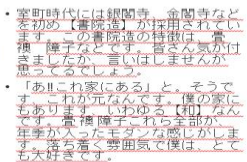 • 室町時代には銀閣寺、金閣寺など
を初め【書院造】が採用されてい
ます。この書院造の特徴は、畳、
襖、障子などです。皆さん気が付
きましたか、言いはしませんが
思ってるでしょう。
• 「あ‼これ家にある」と。そうで
す。これが元なんです。僕の家に
もあります。いわゆる【和】なん
です。畳、襖、障子これら全部が、
年季が入ったモダンな感じがしま
す。落ち着く雰囲気で僕は、とて
も大好きです。